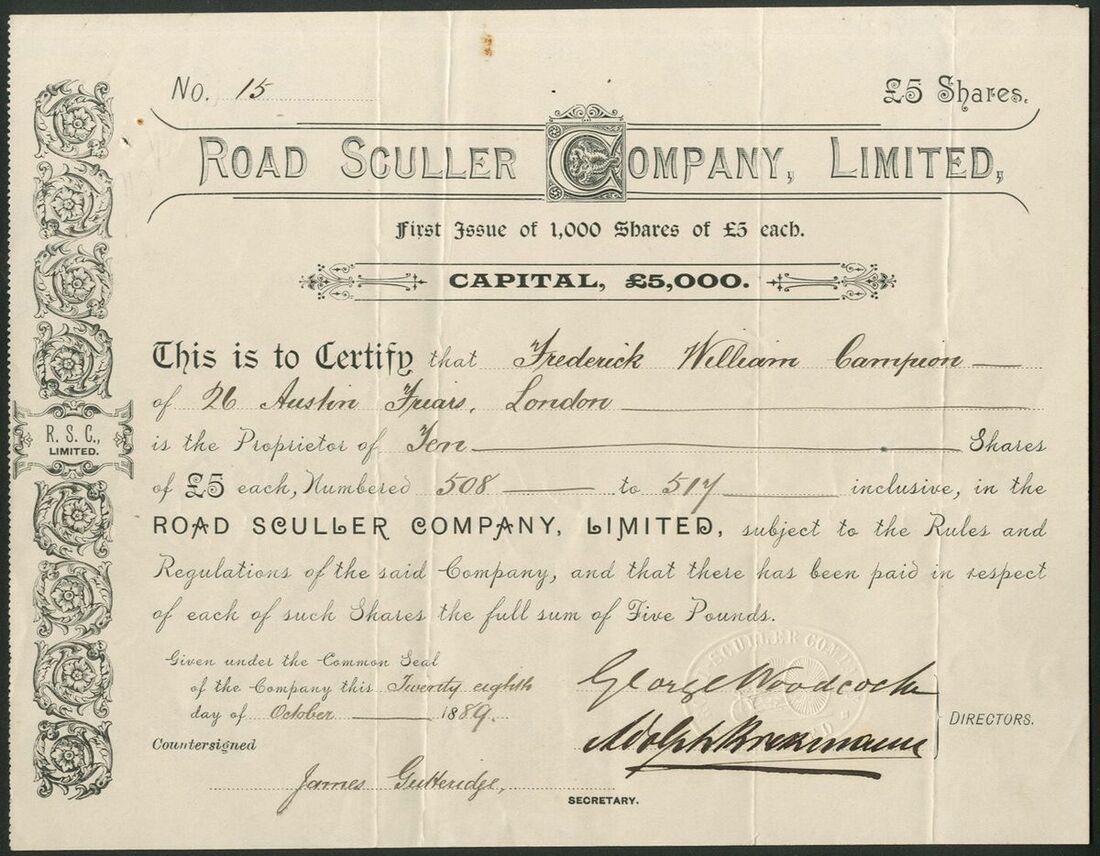 No. 15
£5 Shares.
ROAD SCULLER COMPANY, LIMITED,
First Issue of 1,000 Shares of £5 each.
CAPITAL, £5,000.
This is to Certify that Frederick William Campion
of 26 Austin Friars, London
is the Proprietor of Ten Shares
of £5 each, Numbered 508 to 517 inclusive, in the
ROAD SCULLER COMPANY, LIMITED, subject to the Rules and
Regulations of the said Company, and that there has been paid in respect
of each of such Shares the full sum of Five Pounds.
R. S. C.,
LIMITED.
Given under the Common Seal
of the Company this Twenty eighth
day of October 1889.
SCULLER
George Woodcock
Adolph
DIRECTORS.
Countersigned
James Gutteridge,
SECRETARY.